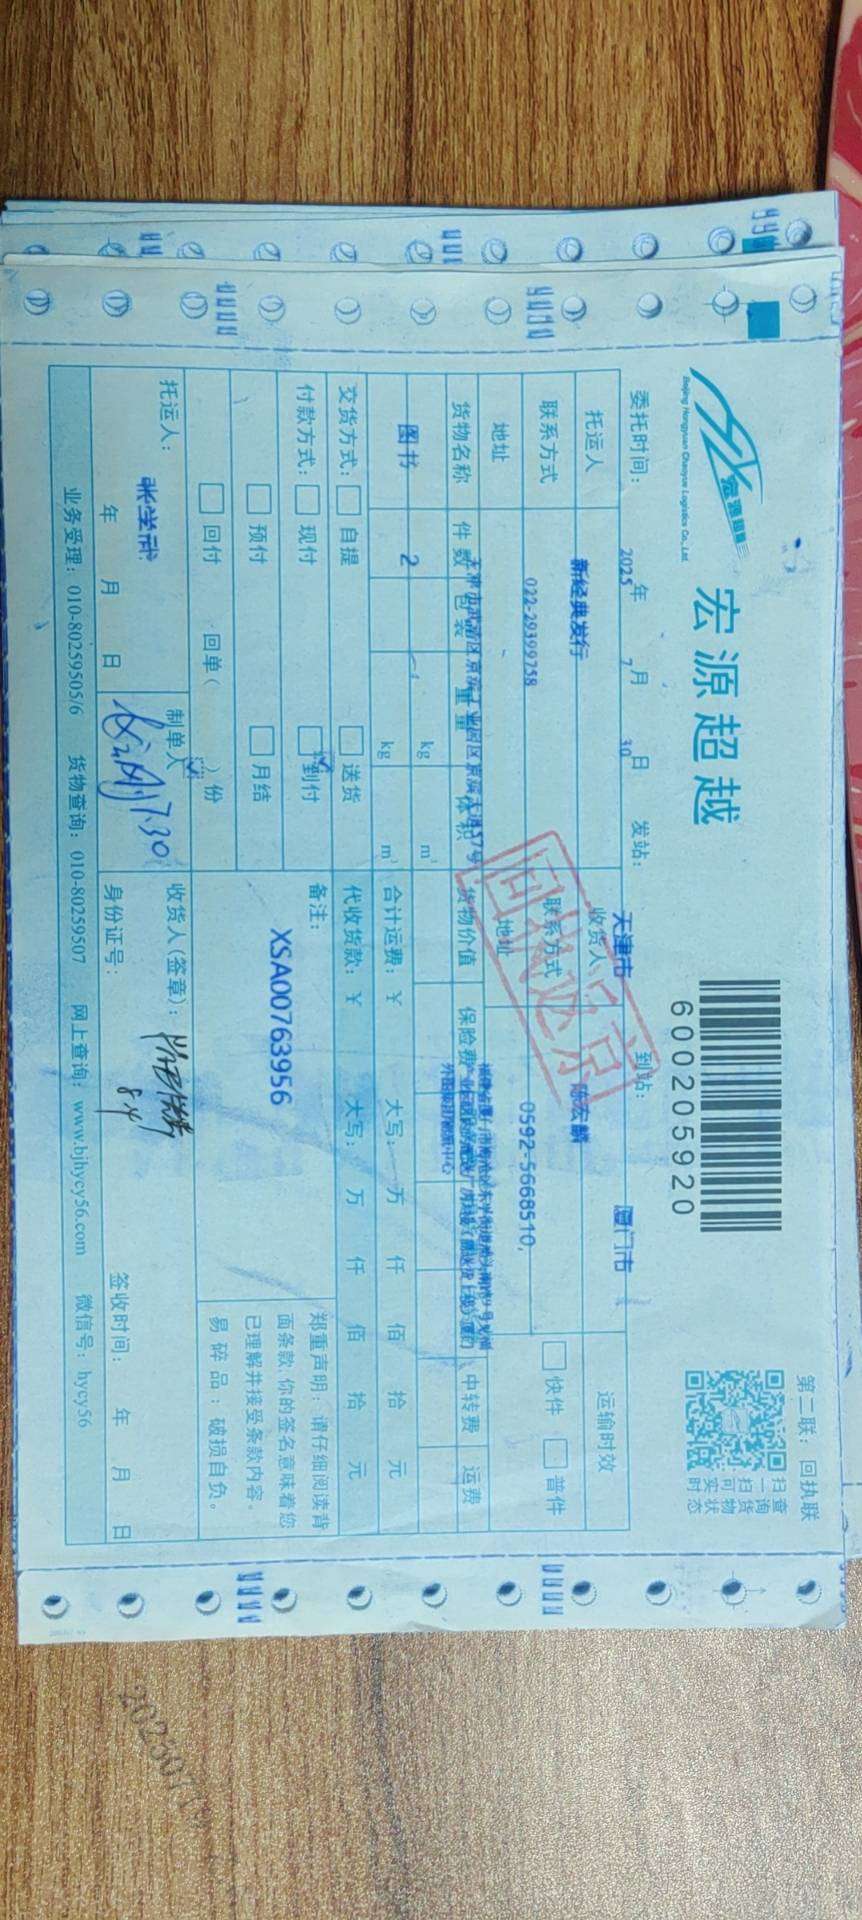 宏源超越
Beijing Hongyuan Chaoyue Logistics Co., Ltd.
宏源超越
600205920
第二联：回执联
扫查
一询
扫货
可物
实状
时态
委托时间：2025年7月30日 发站：天津市 到站：厦门市
托运人 新经典发行 收货人 陈宏麟 运输时效
联系方式 022-29399758 联系方式 0592-5668510, 快件 普件
地址 天津市武清区京滨工业园区京滨大道57号 地址
外图厦门物流中心
货物名称 件数 包装 重量 体积 货物价值 保险费 中转费 运费
图书 2 kg m³
kg m³ 合计运费：¥ 大写： 万 仟 佰 拾 元
交货方式： 自提 送货 代收货款：¥ 大写： 万 仟 佰 拾 元
付款方式： 现付 到付 备注：
预付 月结 XSA00763956
回付 回单（ ）份
郑重声明：请仔细阅读背
面条款，你的签名意味着您
已理解并接受条款内容。
易碎品：破损自负。
回执返京
托运人： 张学武 制单人 7.30 收货人（签章）：
8.4
年 月 日 身份证号： 签收时间： 年 月 日
业务受理：010-80259505/6 货物查询：010-80259507 网上查询：www.bjhycy56.com 微信号：hycy56